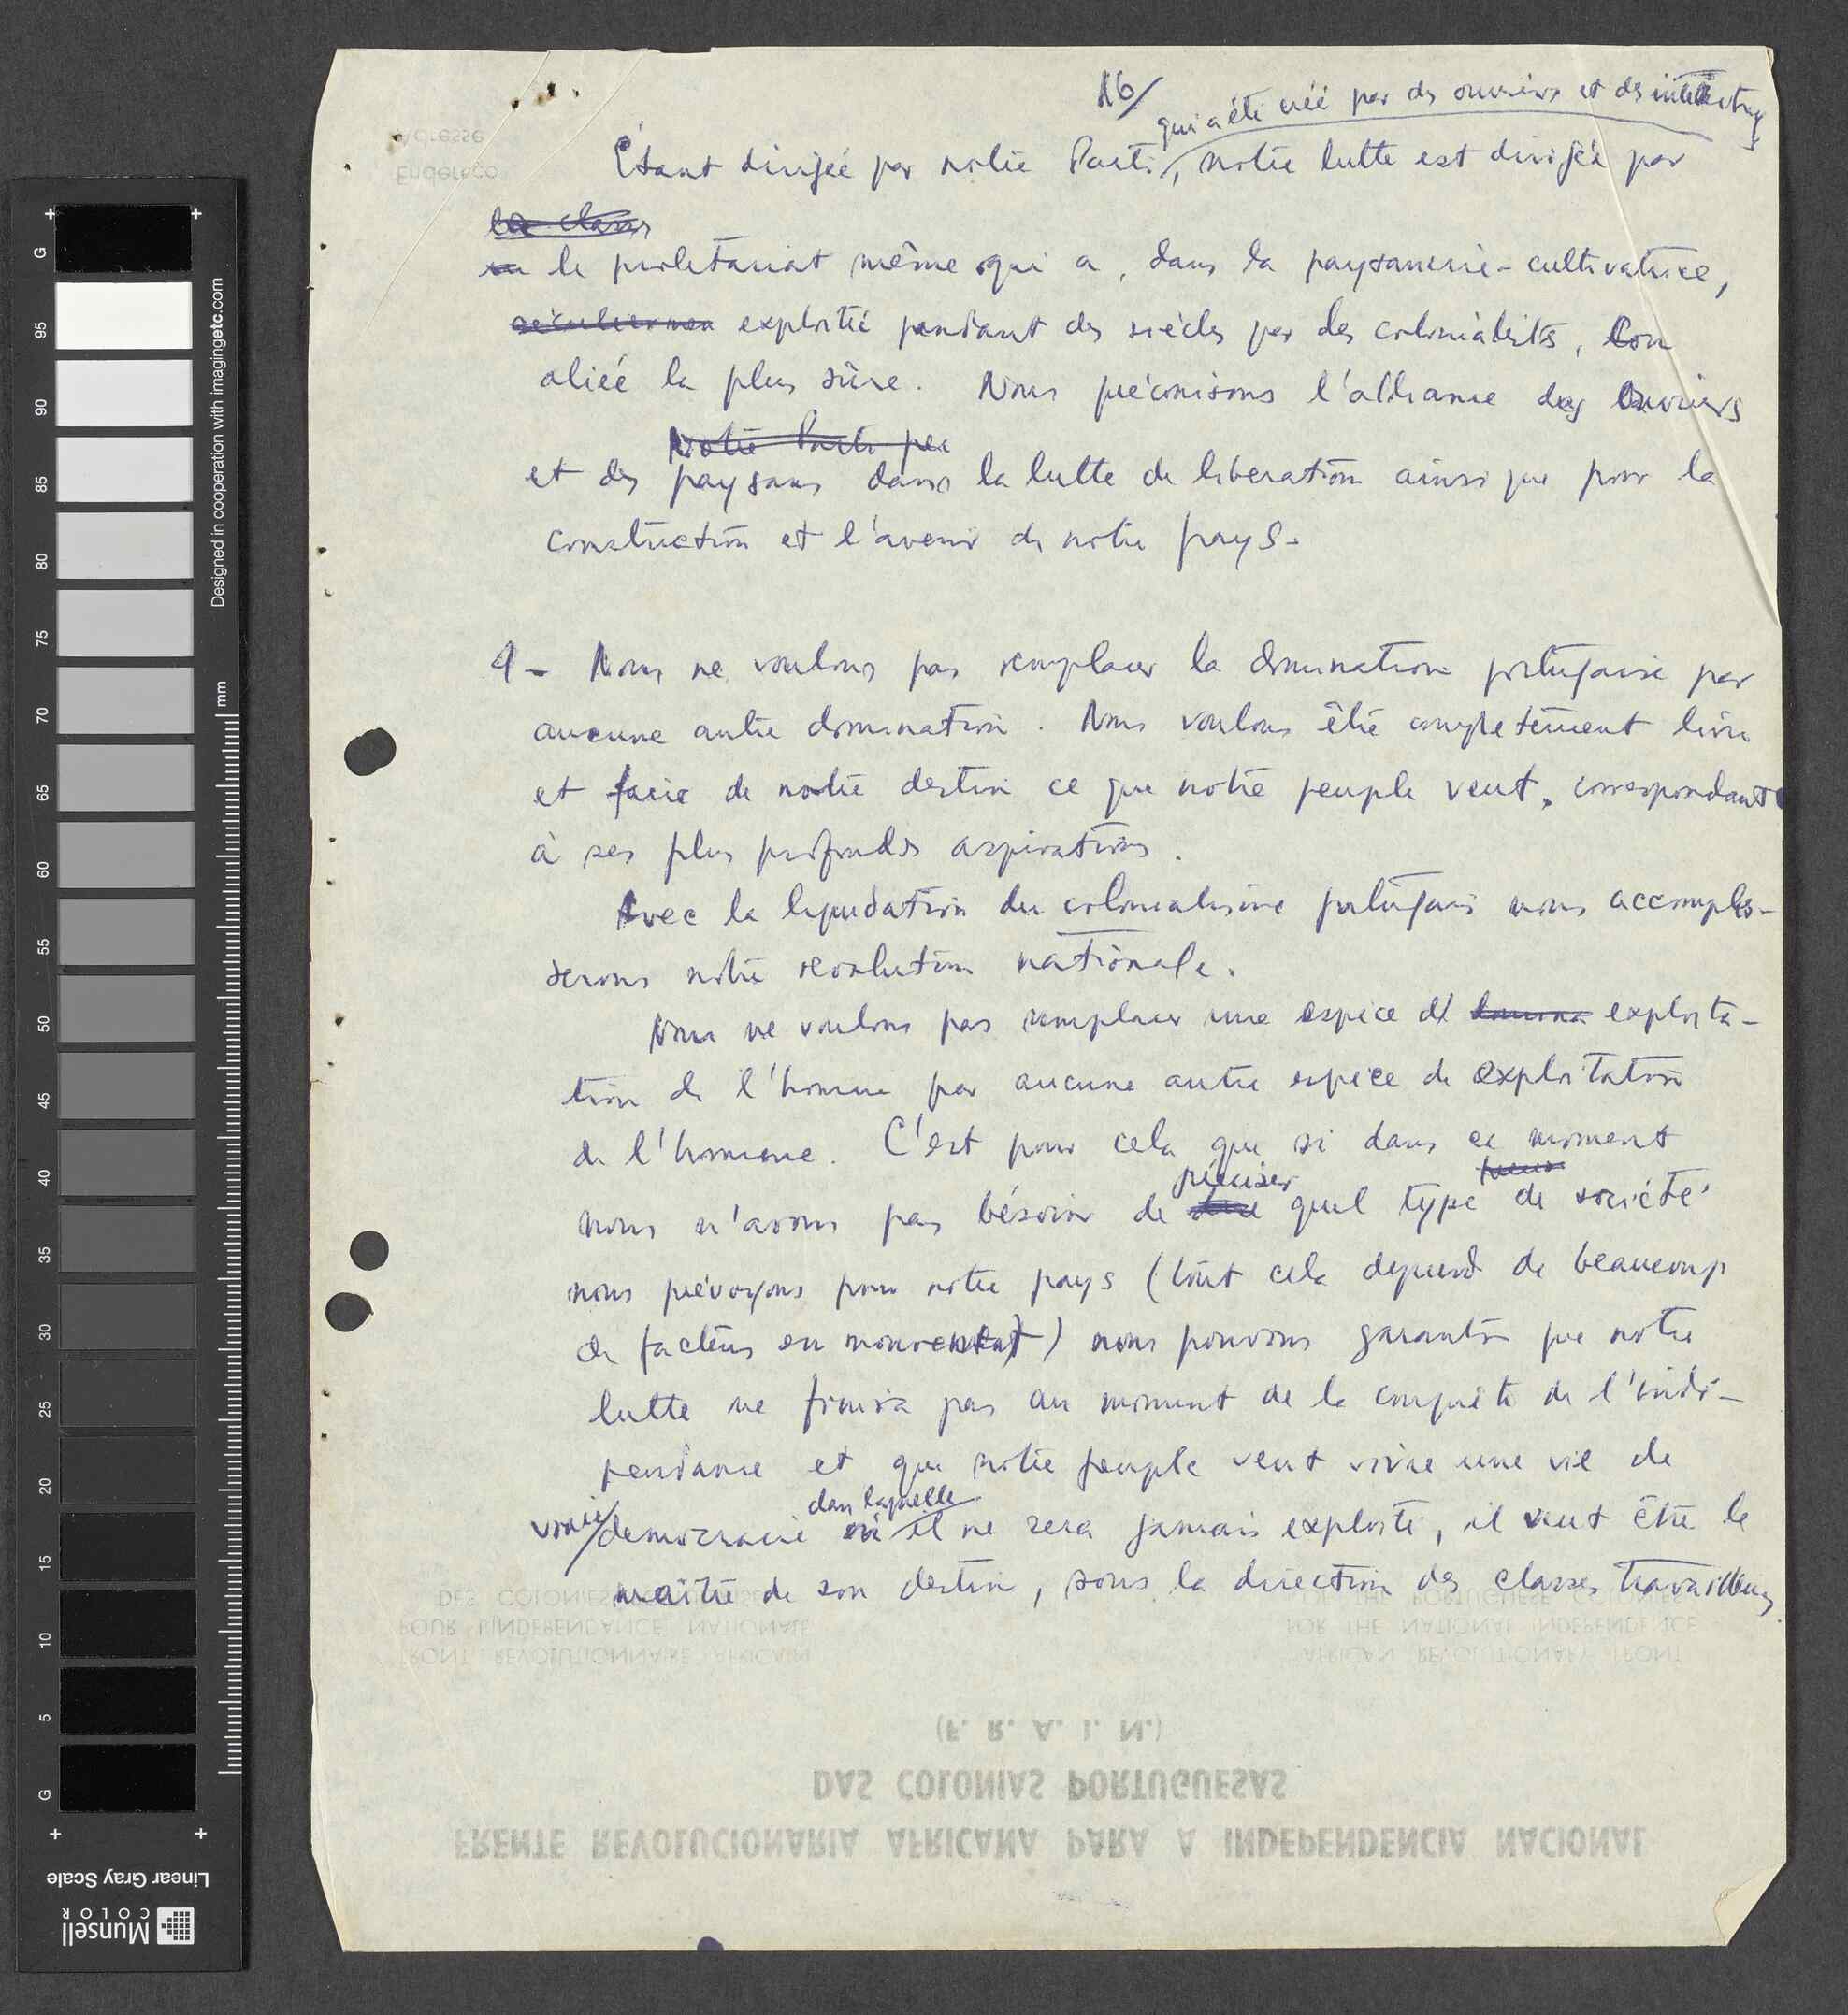 16/
qui a été créé par des ouvriers et des intellectuels
Étant dirigée par notre Parti, notre lutte est dirigée par
la classe
le proletariat même qui a, dans la paysannerie-cultivatrice,
exploitée pendant des siècles par les colonialistes, son
aliée la plus sûre. Nous préconisons l'alliance des ouvriers
Notre Parti
et des paysans dans la lutte de liberation ainsi que pour la
construction et l'avenir de notre pays.
4- Nous ne voulons pas remplacer la domination portugaise par
aucune autre domination. Nous voulons être completement livre
et faire de notre destin ce que notre peuple veut, correspondant
à ses plus profondes aspirations.
Avec la liquidation du colonialisme portugais nous accomplis-
serons notre revolution nationale.
Nous ne voulons pas remplacer une espèce d' exploita-
tion de l'homme par aucune autre espèce de exploitation
de l'homme. C'est pour cela que si dans ce moment
préciser
nous n'avons pas bésoin de quel type de société
nous prévoyons pour notre pays (tout cela depend de beaucoup
de facteurs en mouvement) nous pouvons garantir que notre
lutte ne finira pas au moment de la conquête de l'indé-
pendance et que notre peuple veut vivre une vie de
dans laquelle
vraie/democracie où il ne sera jamais exploité, il veut être le
maître de son destin, sous la direction des classes travailleuses.
Adresse
Endereço
DES COLONIES
POUR L'INDEPENDANCE NATIONALE
FRONT REVOLUTIONNAIRE AFRICAIN
OF THE PORTUGUESE COLONIES
FOR THE NATIONAL INDEPENDENCE
AFRICAN REVOLUTIONARY FRONT
(F. R. A. I. N.)
DAS COLONIAS PORTUGUESAS
FRENTE REVOLUCIONARIA AFRICANA PARA A INDEPENDENCIA NACIONAL
Designed in cooperation with imagingetc.com
mm
G
95
90
85
80
75
70
65
60
55
50
45
40
35
30
25
20
15
10
5
G
Linear Gray Scale
Munsell
COLOR